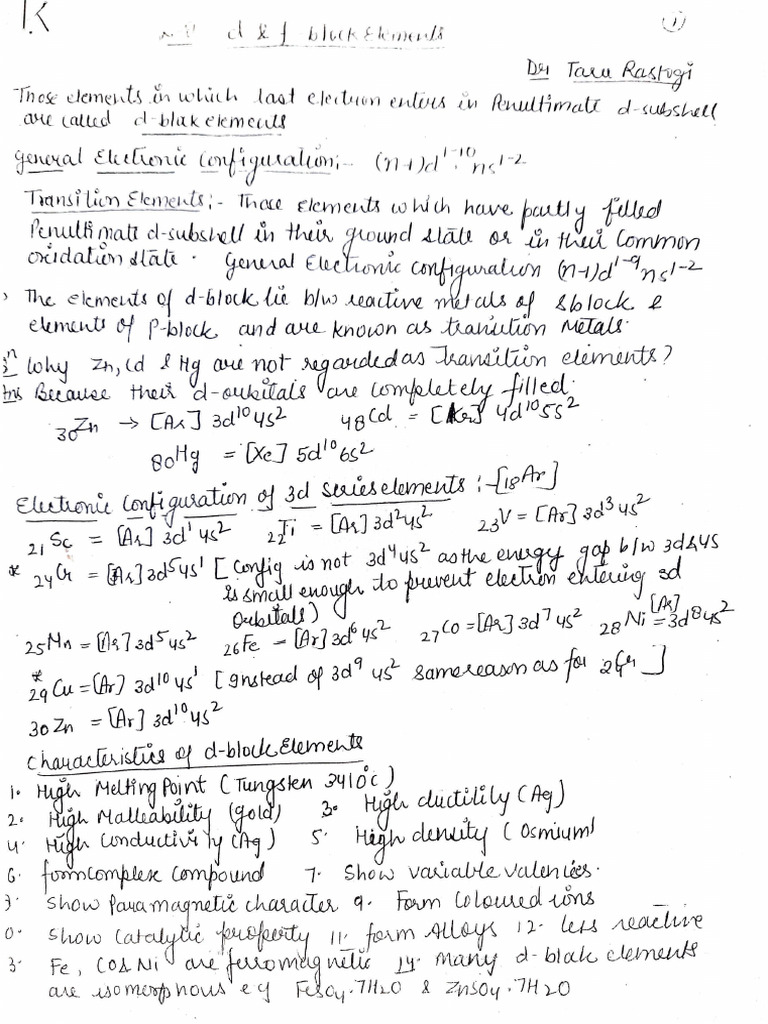 K
d & f-block Elements
1
Dr Taru Rastogi
Those elements in which last electron enters in Penultimate d-subshell
are called d-block elements
General Electronic Configuration:- (n-1)d¹⁻¹⁰ns¹⁻²
Transition Elements:- Those elements which have partly filled
Penultimate d-subshell in their ground state or in their common
oxidation state. General Electronic configuration (n-1)d¹⁻⁹ns¹⁻²
The elements of d-block lie b/w reactive metals of s block &
elements of P-block and are known as transition Metals.
Why Zn, Cd & Hg are not regarded as Transition elements?
Ans Because their d-orbitals are completely filled.
₃₀Zn → [Ar] 3d¹⁰4s² ₄₈Cd = [Kr] 4d¹⁰5s²
₈₀Hg = [Xe] 5d¹⁰6s²
Electronic Configuration of 3d Series elements :-[₁₈Ar]
₂₁Sc = [Ar] 3d¹4s² ₂₂Ti = [Ar] 3d²4s² ₂₃V = [Ar] 3d³4s²
* ₂₄Cr = [Ar] 3d⁵4s¹ [Config is not 3d⁴4s² as the energy gap b/w 3d & 4s
is small enough to prevent electron entering 3d
Orbitals)
₂₅Mn = [Ar] 3d⁵4s² ₂₆Fe = [Ar] 3d⁶4s² ₂₇Co = [Ar] 3d⁷4s² ₂₈Ni = [Ar] 3d⁸4s²
* ₂₉Cu = [Ar) 3d¹⁰4s¹ [Instead of 3d⁹ 4s² same reason as for ₂₄Cr]
₃₀Zn = [Ar] 3d¹⁰4s²
Characteristics of d-block Elements
1. High Melting Point (Tungsten 3410°C)
2. High Malleability (gold) 3. High ductility (Ag)
4. High Conductivity (Ag) 5. High density (Osmium)
6. form Complex Compound 7. Show variable valencies.
Show Paramagnetic character 9. Form Coloured ions
0. Show Catalytic property 11. form Alloys 12. less reactive
3. Fe, Co & Ni are ferromagnetic 14. many d-block elements
are isomorphous eg FeSO₄.7H₂O & ZnSO₄.7H₂O